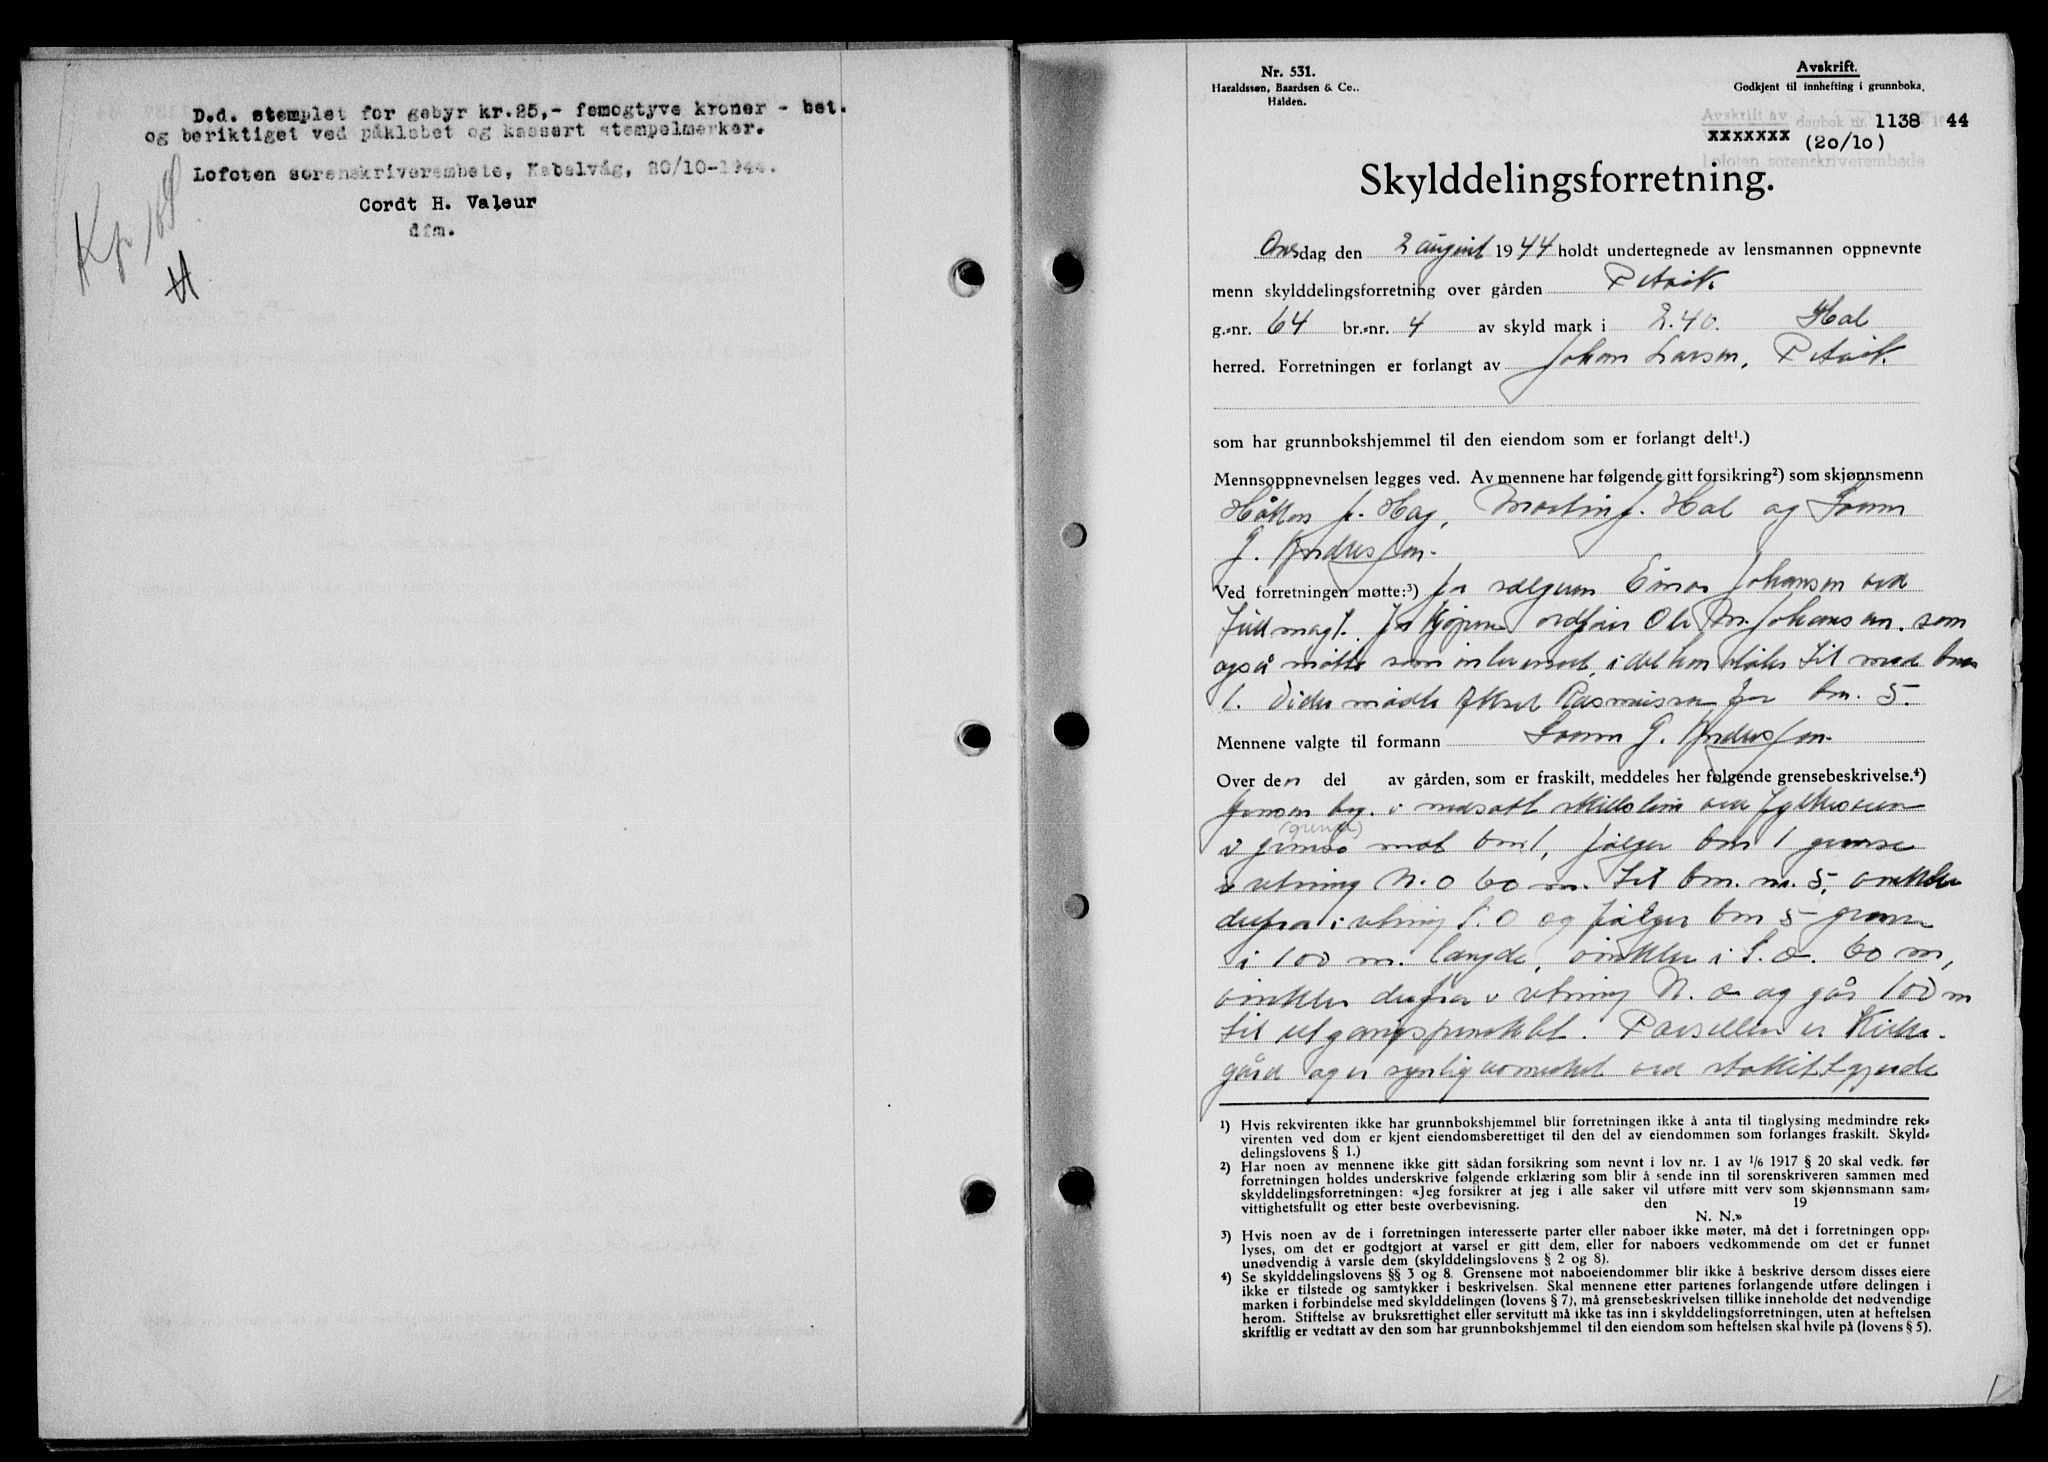 D.d. stemplet for gebyr kr.25,- femogtyve kroner - bet.
og beriktiget ved påklebet og kassert stempelmerker.
Lofoten sorenskriverembete, Kabelvåg, 20/10-1944.
Cordt H. Valeur
dfm.
Kp 168
H
Nr. 531.
Haraldssøn, Baardsen & Co.,
Halden.
Avskrift.
Godkjent til innhefting i grunnboka.
Avskrift av dagbok nr. 1138 44
xxxxxxx (20/10)
Lofoten sorenskriverembede
Skylddelingsforretning.
Onsdag den 2 august 1944 holdt undertegnede av lensmannen oppnevnte
menn skylddelingsforretning over gården Petvik.
g.-nr. 64 br.-nr. 4 av skyld mark i 2.40. Hol
herred. Forretningen er forlangt av Johan Larsen, Petvik.
som har grunnbokshjemmel til den eiendom som er forlangt delt¹.)
Mennsoppnevnelsen legges ved. Av mennene har følgende gitt forsikring²) som skjønnsmenn
Håkon J. Hag, Martin J. Hol og
G. Andreassen.
Ved forretningen møtte:³) for selgeren Einar Johansen ved
fullmagt. for kjøperen ordfører Ole M. Johansen. som
også møtte som interessert, idet han støter til med bnr
1. Videre møtte Aksel Rasmussen for bnr. 5.
Mennene valgte til formann G. Andreassen.
Over den del av gården, som er fraskilt, meddeles her følgende grensebeskrivelse.⁴)
Grensen beg. i nedsatt ved fylkesveien
(grense)
i mot bnr 1, følger bnr 1 grense
i retning N.O 60 m. til bnr. nr. 5, vinkler
derfra i retning S.O og følger bnr 5 grense
i 100 m. længde, vinkler i S.V. 60 m,
vinkler derfra i retning N.V og går 100 m
til utgangspunktet. Parsellen er Kirke-
gård og er synlig avmerket ved stakittgjerde
1) Hvis rekvirenten ikke har grunnbokshjemmel blir forretningen ikke å anta til tinglysing medmindre rek-
virenten ved dom er kjent eiendomsberettiget til den del av eiendommen som forlanges fraskilt. Skyld-
delingslovens § 1.)
2) Har noen av mennene ikke gitt sådan forsikring som nevnt i lov nr. 1 av 1/6 1917 § 20 skal vedk. før
forretningen holdes underskrive følgende erklæring som blir å sende inn til sorenskriveren sammen med
skylddelingsforretningen: «Jeg forsikrer at jeg i alle saker vil utføre mitt verv som skjønnsmann sam-
vittighetsfullt og etter beste overbevisning. den 19
N. N.»
3) Hvis noen av de i forretningen interesserte parter eller naboer ikke møter, må det i forretningen opp-
lyses, om det er godtgjort at varsel er gitt dem, eller for naboers vedkommende om det er funnet
unødvendig å varsle dem (skylddelingslovens § 2 og 8).
4) Se skylddelingslovens §§ 3 og 8. Grensene mot naboeiendommer blir ikke å beskrive dersom disses eiere
ikke er tilstede og samtykker i beskrivelsen. Skal mennene etter partenes forlangende utføre delingen i
marken i forbindelse med skylddelingen (lovens § 7), må grensebeskrivelsen tillike inneholde det nødvendige
herom. Stiftelse av bruksrettighet eller servitutt må ikke tas inn i skylddelingsforretningen, uten at heftelsen
skriftlig er vedtatt av den som har grunnbokshjemmel til den eiendom som heftelsen skal hvile på (lovens § 5).